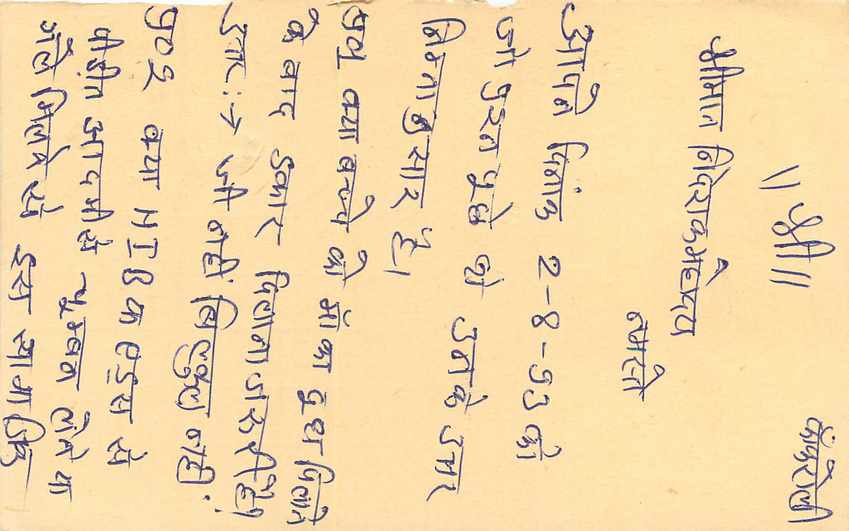 ॥ श्री ॥
कांकरोली
श्रीमान निदेशक महोदय
नमस्ते
आपने दिनांक 2-8-93 को
जो प्रश्न पुछे थे उनके उत्तर
निम्नानुसार है।
प्रश्न1 क्या बच्चे को माँ का दुध पिलाने
के बाद डकार दिलाना जरूरी है।
उत्तर:→ जी नहीं बिल्कुल नही:
प्र०2 क्या HIB क एड्स से
पीड़ीत आदमी से चुम्बन लेने या
गले मिलने से इस